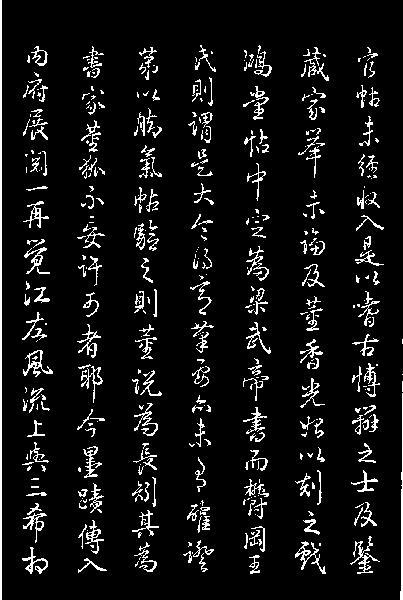 官帖未經收入是以嗜古博辯之士及鑒
藏家舉未論及董香光始以刻之戲
鴻堂帖中定為梁武帝書而鬱岡王
氏則謂是大令得意筆要亦未有確證
第以腕氣帖驗之則董說為長矧其為
書家董狐不妄許可者耶今墨蹟傳入
內府展閱一再覺江左風流上與三希相